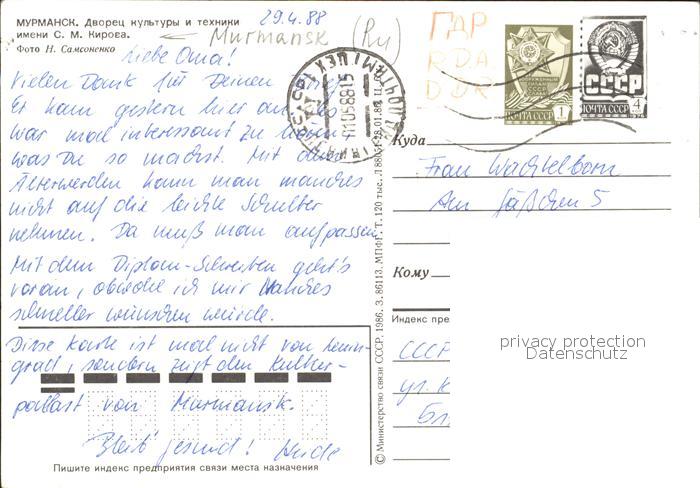 МУРМАНСК. Дворец культуры и техники
имени С. М. Кирова.
Фото Н. Самсоненко
29.4.88
← Murmansk (Ru)
ГДР
RDA
DDR
ПОЧТА СССР 1
СССР
ПОЧТА СССР 4
Liebe Oma!
Vielen Dank für Deinen Brief.
Er kam gestern hier an. Es
war mal interessant zu lesen,
was Du so machst. Mit dem
Älterwerden kann man manches
nicht auf die leichte Schulter
nehmen. Da muß man aufpassen.
Mit dem Diplom-Schreiben geht's
voran, obwohl ich mir Manches
schneller wünschen würde.
Diese Karte ist mal nicht von Lenin-
grad, sondern zeigt den Kultur-
pallast von Murmansk.
Bleib' gesund!
Пишите индекс предприятия связи места назначения
© Министерство связи СССР, 1986. З. 86113. МПФГ. Т. 120 тыс.
Куда
Frau Wachtelborn
Am Gäßchen 5
Кому
Индекс пре
privacy protection
Datenschutz
СССР
ул. К
Бл